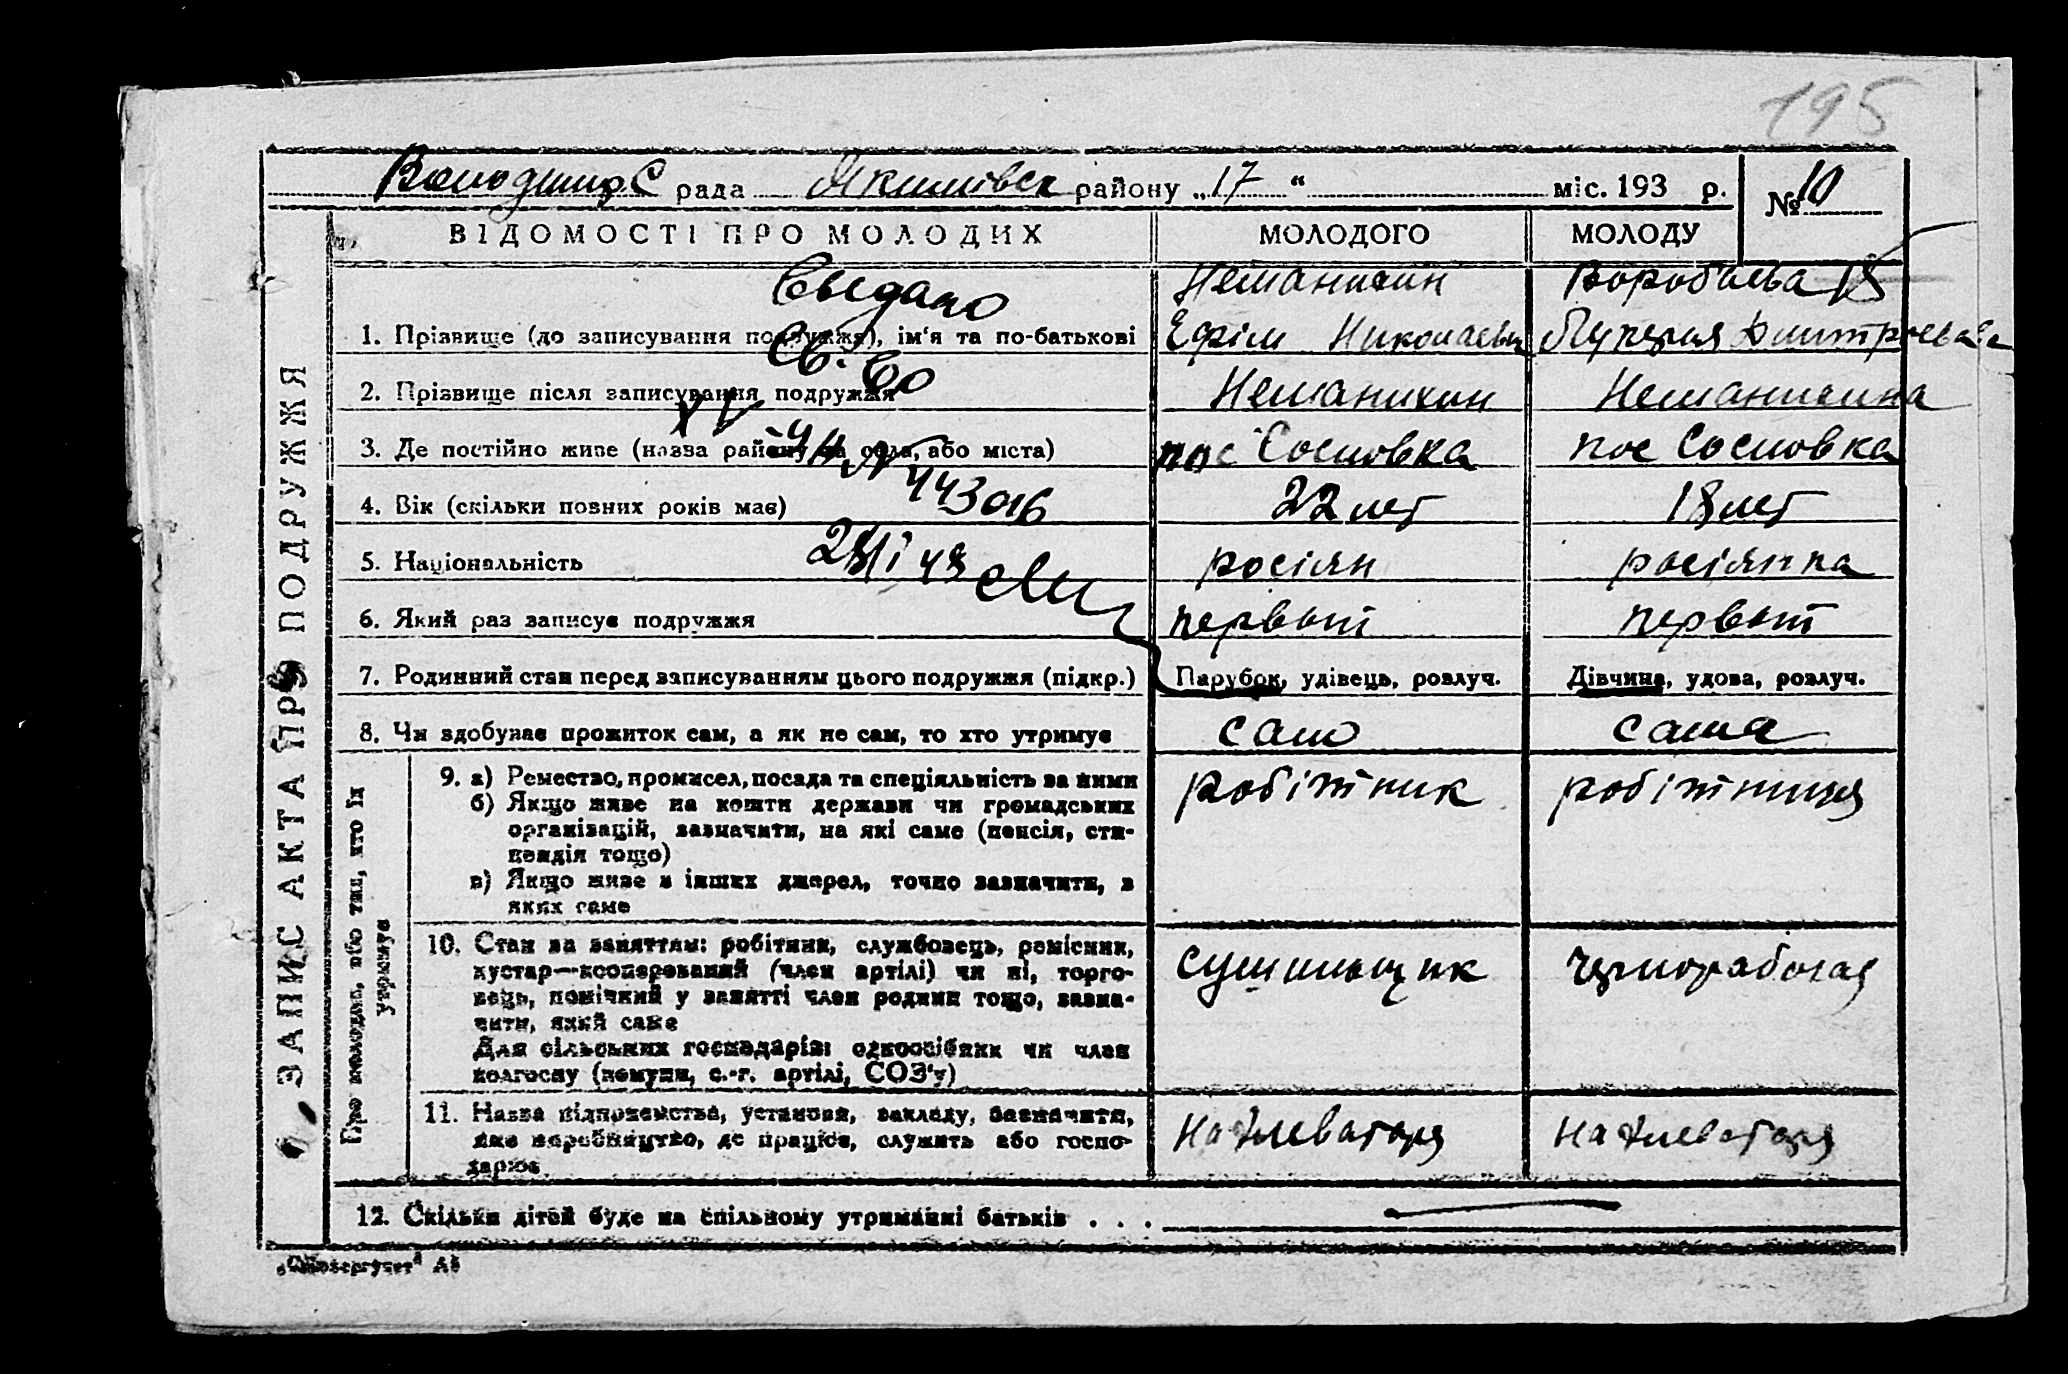 195
рада район у „17“ міс. 193 р. № 10
ЗАПИС АКТА ПРО ПОДРУЖЖЯ
ВІДОМОСТІ ПРО МОЛОДИХ МОЛОДОГО МОЛОДУ
Неманихин Воробьева 18
1. Прізвище (до записування подружжя), ім'я та по-батькові Ефім Николаевич Дмитриевна
2. Прізвище після записування подружжя Неманихин Неманихина
3. Де постійно живе (назва району та села, або міста) пос Сосновка пос Сосновка
4. Вік (скільки повних років має) 22 лет 18 лет
5. Національність росіян росіянка
6. Який раз записує подружжя первый первый
7. Родинний стан перед записуванням цього подружжя (підкр.) Парубок, удівець, розлуч. Дівчина, удова, розлуч.
8. Чи здобуває прожиток сам, а як не сам, то хто утримує само сама
Св. во
443016
Про молодих, або тих, хто їх утримує
9. а) Ремество, промисел, посада та спеціяльність за ними робітник робітниця
б) Якщо живе на кошти держави чи громадських
організацій, зазначити, на які саме (пенсія, сти-
пендія тощо)
в) Якщо живе з інших джерел, точно зазначити, з
яких саме
10. Стан за заняттям: робітник, службовець, ремісник, сушильщик чернорабочая
кустар—кооперований (член артілі) чи ні, торго-
вець, помічний у занятті член родини тощо, зазна-
чити, який саме
Для сільських господарів: одноосібник чи член
колгоспу (комуни, с.-г. артілі, СОЗ'у)
11. Назва підприємства, установи, закладу, зазначити, на элеваторя на элеваторя
яке виробництво, де працює, служить або госпо-
дарює
12. Скільки дітей буде на спільному утриманні батьків . . .